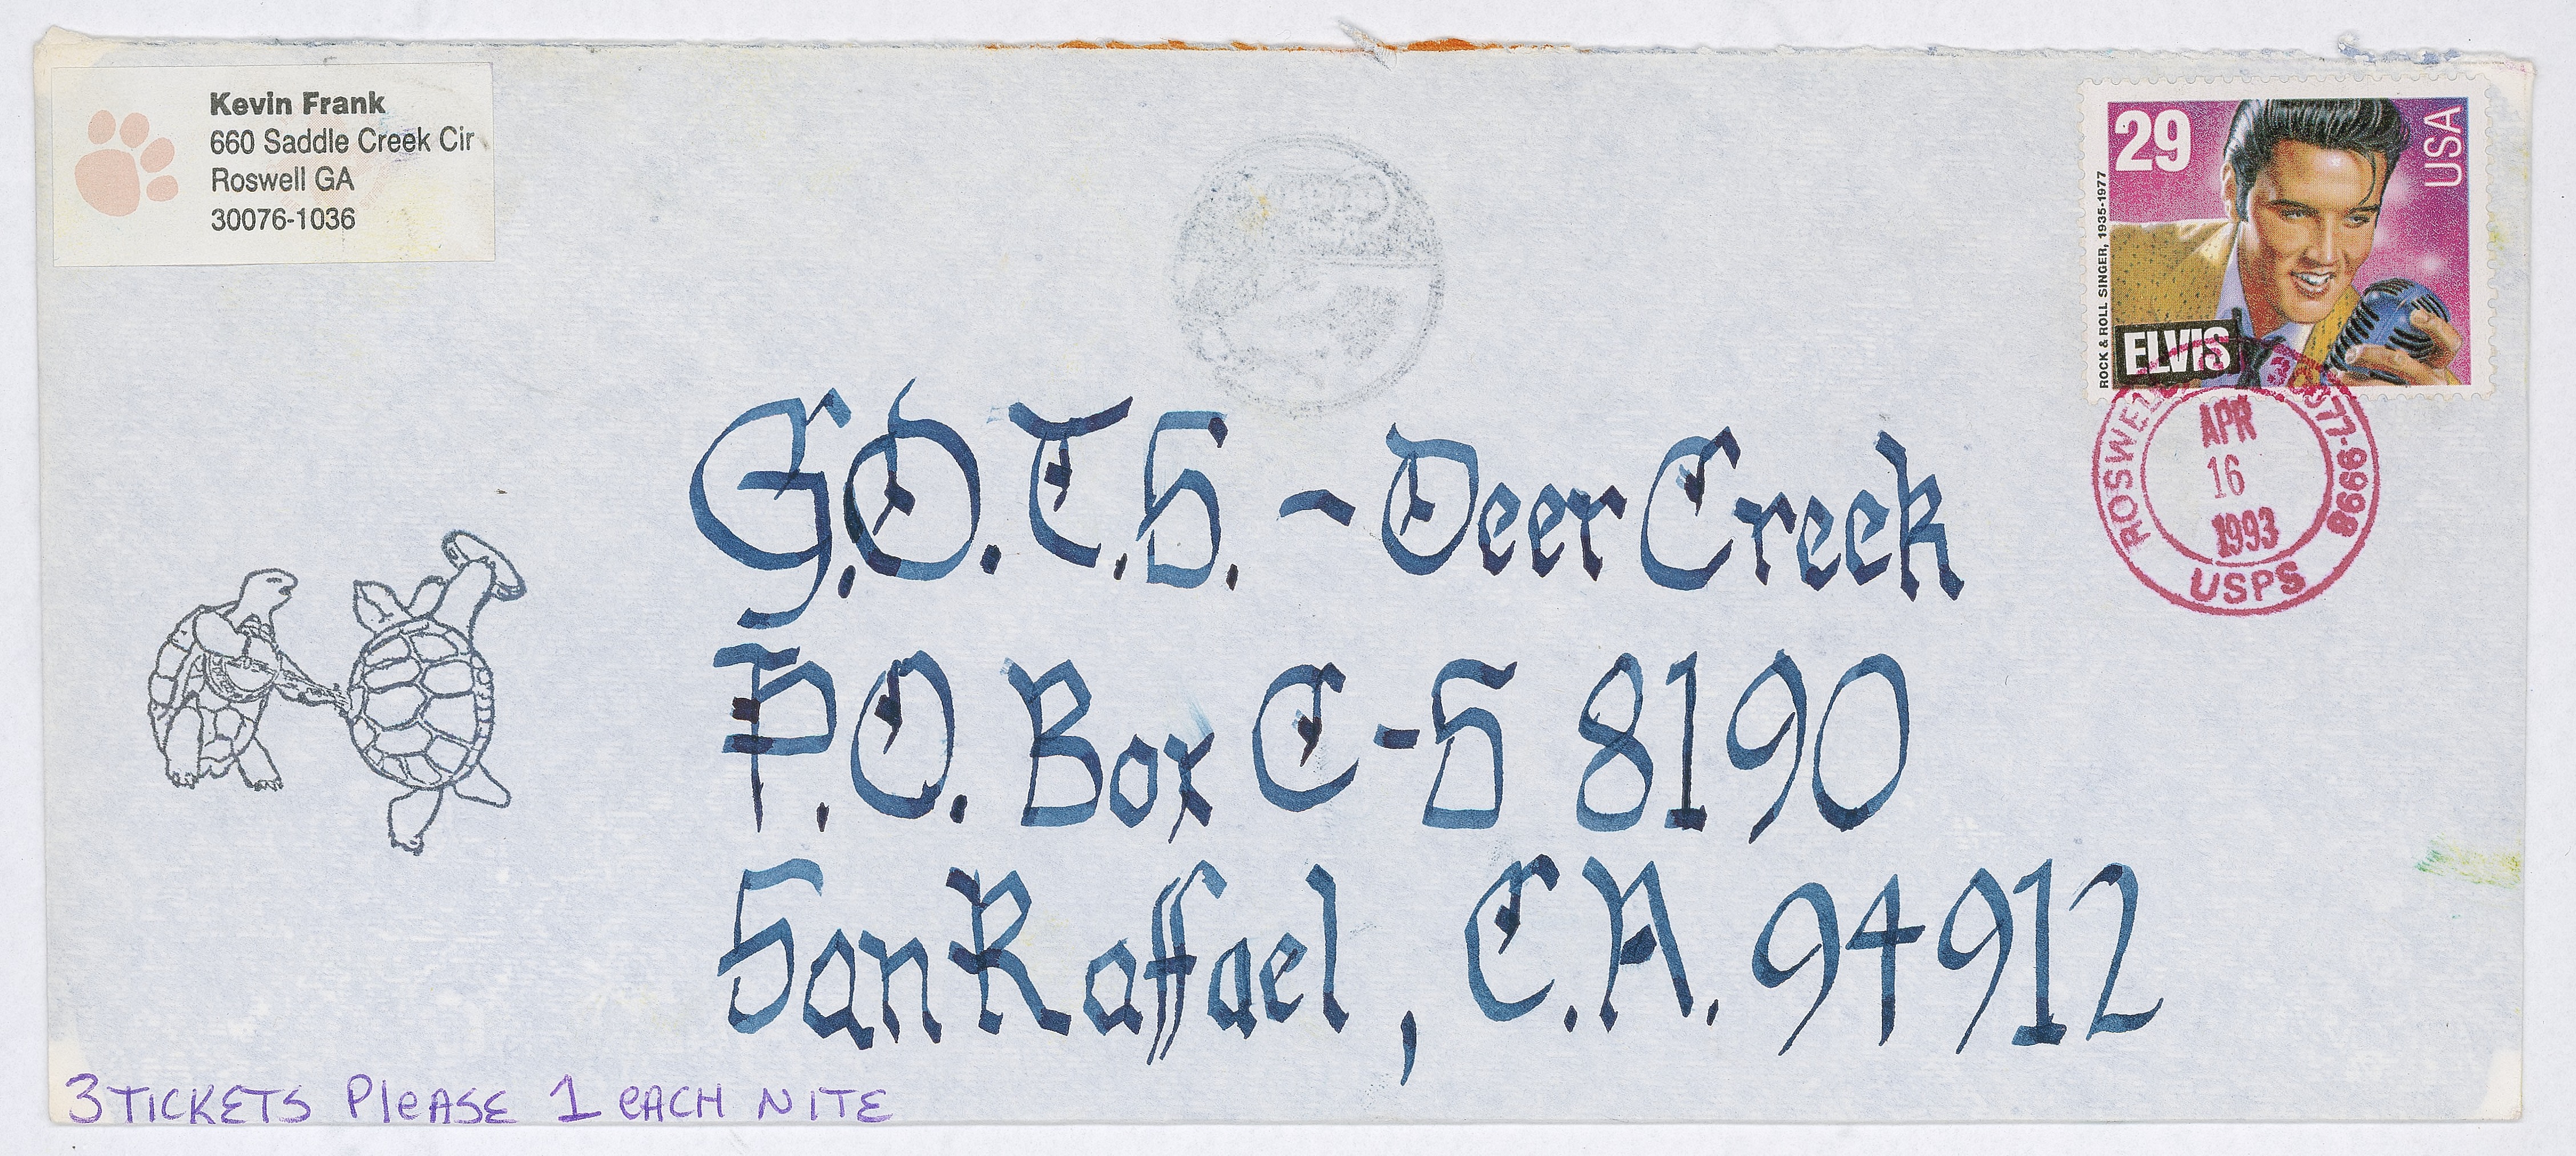 Kevin Frank
660 Saddle Creek Cir
Roswell GA
30076-1036
29
USA
ROCK & ROLL SINGER, 1935-1977
ELVIS
APR
16
1993
USPS
G.D.T.S. - Deer Creek
P.O. Box C-S 8190
San Raffael, C.A. 94912
3 TICKETS PleASE 1 eACH NITE